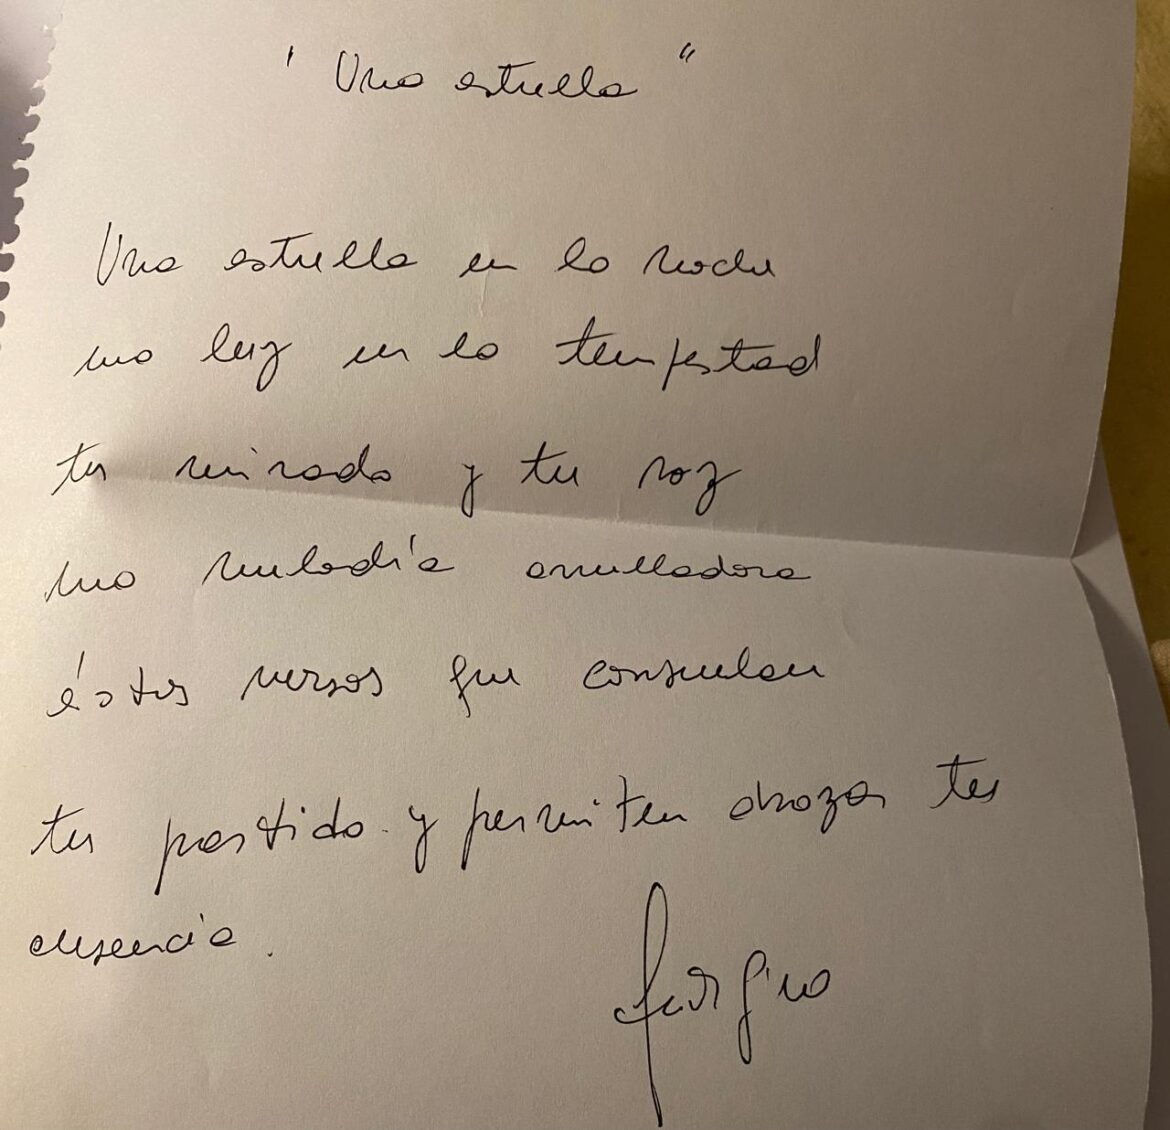 ' Una estrella "
Una estrella en la noche
una luz en la tempestad
tu mirada y tu voz
una melodía arrulladora
éstos versos que consuelan
tu partida y permiten abrazar tu
ausencia.